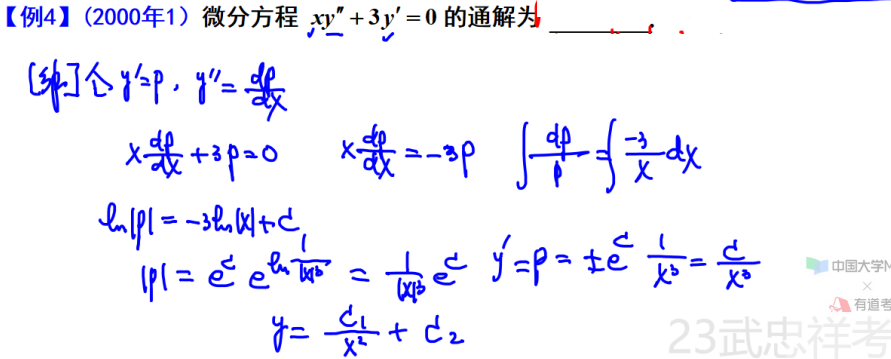 【例4】(2000年1) 微分方程 xy″+3y′=0 的通解为________.
[解] 令 y'=p, y''=dp/dx
x dp/dx +3p=0 x dp/dx = -3p ∫ dp/p = ∫ -3/x dx
ln|p| = -3ln|x|+C
|p| = e^C e^{ln 1/|x|^3} = 1/|x|^3 e^C y'=p = ±e^C 1/x^3 = C/x^3
中国大学M
×
有道考
y = C₁/x² + C₂
23武忠祥考